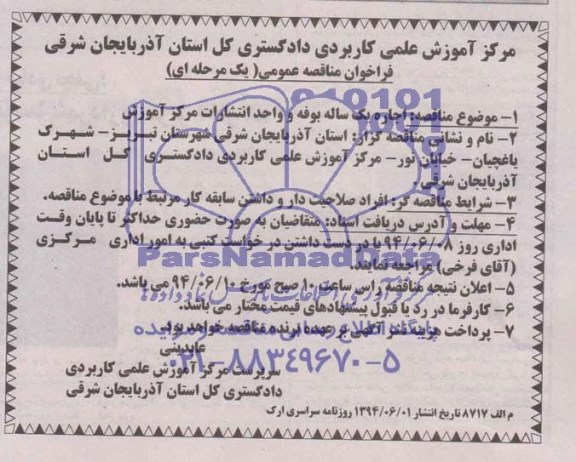 مرکز آموزش علمی کاربردی دادگستری کل استان آذربایجان شرقی
فراخوان مناقصه عمومی( یک مرحله ای)
۱- موضوع مناقصه: اجاره یک ساله بوفه و واحد انتشارات مرکز آموزش
۲- نام و نشانی مناقصه گزار: استان آذربایجان شرقی شهرستان تبریز- شهرک
باغچیان- خیابان نور- مرکز آموزش علمی کاربردی دادگستری کل استان
آذربایجان شرقی.
۳- شرایط مناقصه گر: افراد صلاحیت دار و داشتن سابقه کار مرتبط با موضوع مناقصه.
۴- مهلت و آدرس دریافت اسناد: متقاضیان به صورت حضوری حداکثر تا پایان وقت
اداری روز ۹۴/۰۶/۰۸ با در دست داشتن درخواست کتبی به امور اداری مرکزی
(آقای فرخی) مراجعه نمایند.
ParsNamadData
۵- اعلان نتیجه مناقصه راس ساعت ۱۰ صبح مورخ ۹۴/۰۶/۱۰ می باشد.
۶- کارفرما در رد یا قبول پیشنهادهای قیمت مختار می باشد.
۷- پرداخت هزینه نشر آگهی بر عهده برنده مناقصه خواهد بود.
عابدینی
۰۲۱-۸۸۳۴۹۶۷۰-۵
سرپرست مرکز آموزش علمی کاربردی
دادگستری کل استان آذربایجان شرقی
م الف ۸۷۱۷ تاریخ انتشار ۱۳۹۴/۰۶/۰۱ روزنامه سراسری ارک